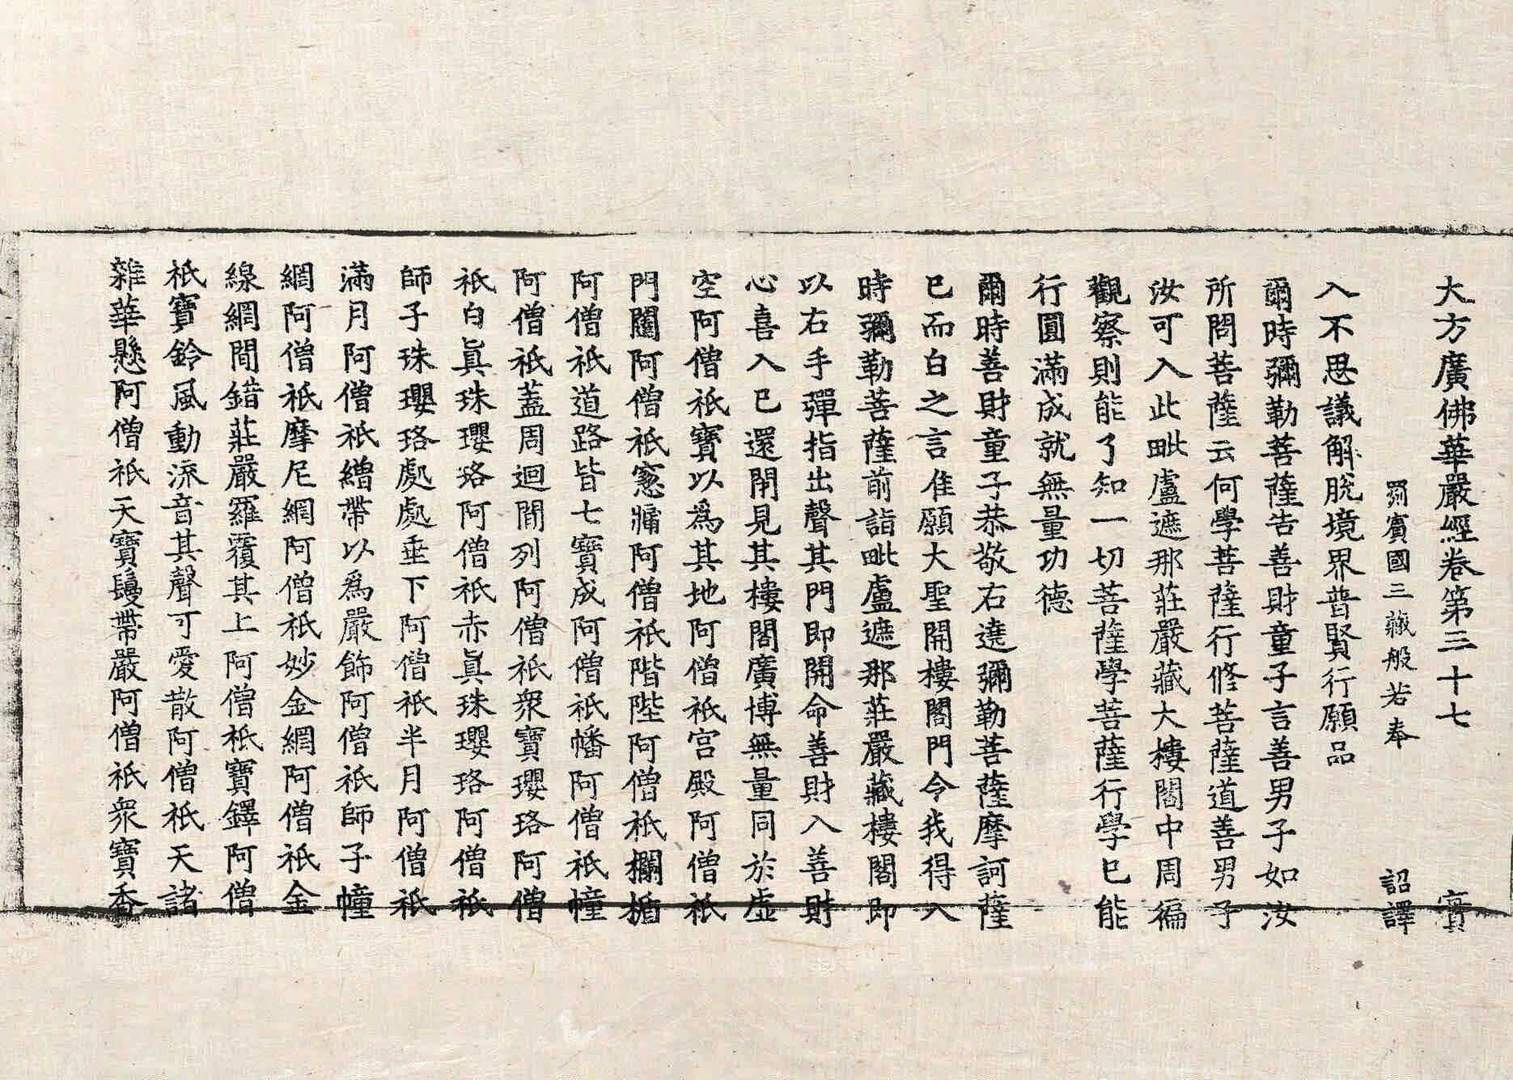 大方廣佛華嚴經卷第三十七 賓
罽賓國三藏般若奉 詔譯
入不思議解脫境界普賢行願品
爾時彌勒菩薩告善財童子言善男子如汝
所問菩薩云何學菩薩行修菩薩道善男子
汝可入此毗盧遮那莊嚴藏大樓閣中周徧
觀察則能了知一切菩薩學菩薩行學已能
行圓滿成就無量功德
爾時善財童子恭敬右遶彌勒菩薩摩訶薩
已而白之言唯願大聖開樓閣門令我得入
時彌勒菩薩前詣毗盧遮那莊嚴藏樓閣即
以右手彈指出聲其門即開命善財入善財
心喜入已還閉見其樓閣廣博無量同於虛
空阿僧祇寶以爲其地阿僧祇宮殿阿僧祇
門闥阿僧祇窻牗阿僧祇階陛阿僧祇欄楯
阿僧祇道路皆七寶成阿僧祇幡阿僧祇幢
阿僧祇蓋周迴間列阿僧祇衆寶瓔珞阿僧
祇白眞珠瓔珞阿僧祇赤眞珠瓔珞阿僧祇
師子珠瓔珞處處垂下阿僧祇半月阿僧祇
滿月阿僧祇繒帶以爲嚴飾阿僧祇師子幢
網阿僧祇摩尼網阿僧祇妙金網阿僧祇金
線網間錯莊嚴羅覆其上阿僧祇寶鐸阿僧
祇寶鈴風動流音其聲可愛散阿僧祇天諸
雜華懸阿僧祇天寶鬘帶嚴阿僧祇衆寶香